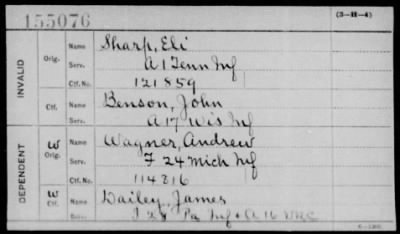 155076
(3-H-4)
INVALID
Orig. Name Sharp, Eli
Serv. A 1 Tenn Inf
Ctf. No. 121859
Ctf. Name Benson, John
A 17 Wis Inf
DEPENDENT
W Orig. Name Wagner, Andrew
Serv. F 24 Mich Inf
Ctf. No. 114816
W Ctf. Name Dailey, James
Pa Inf & A 16 VRC